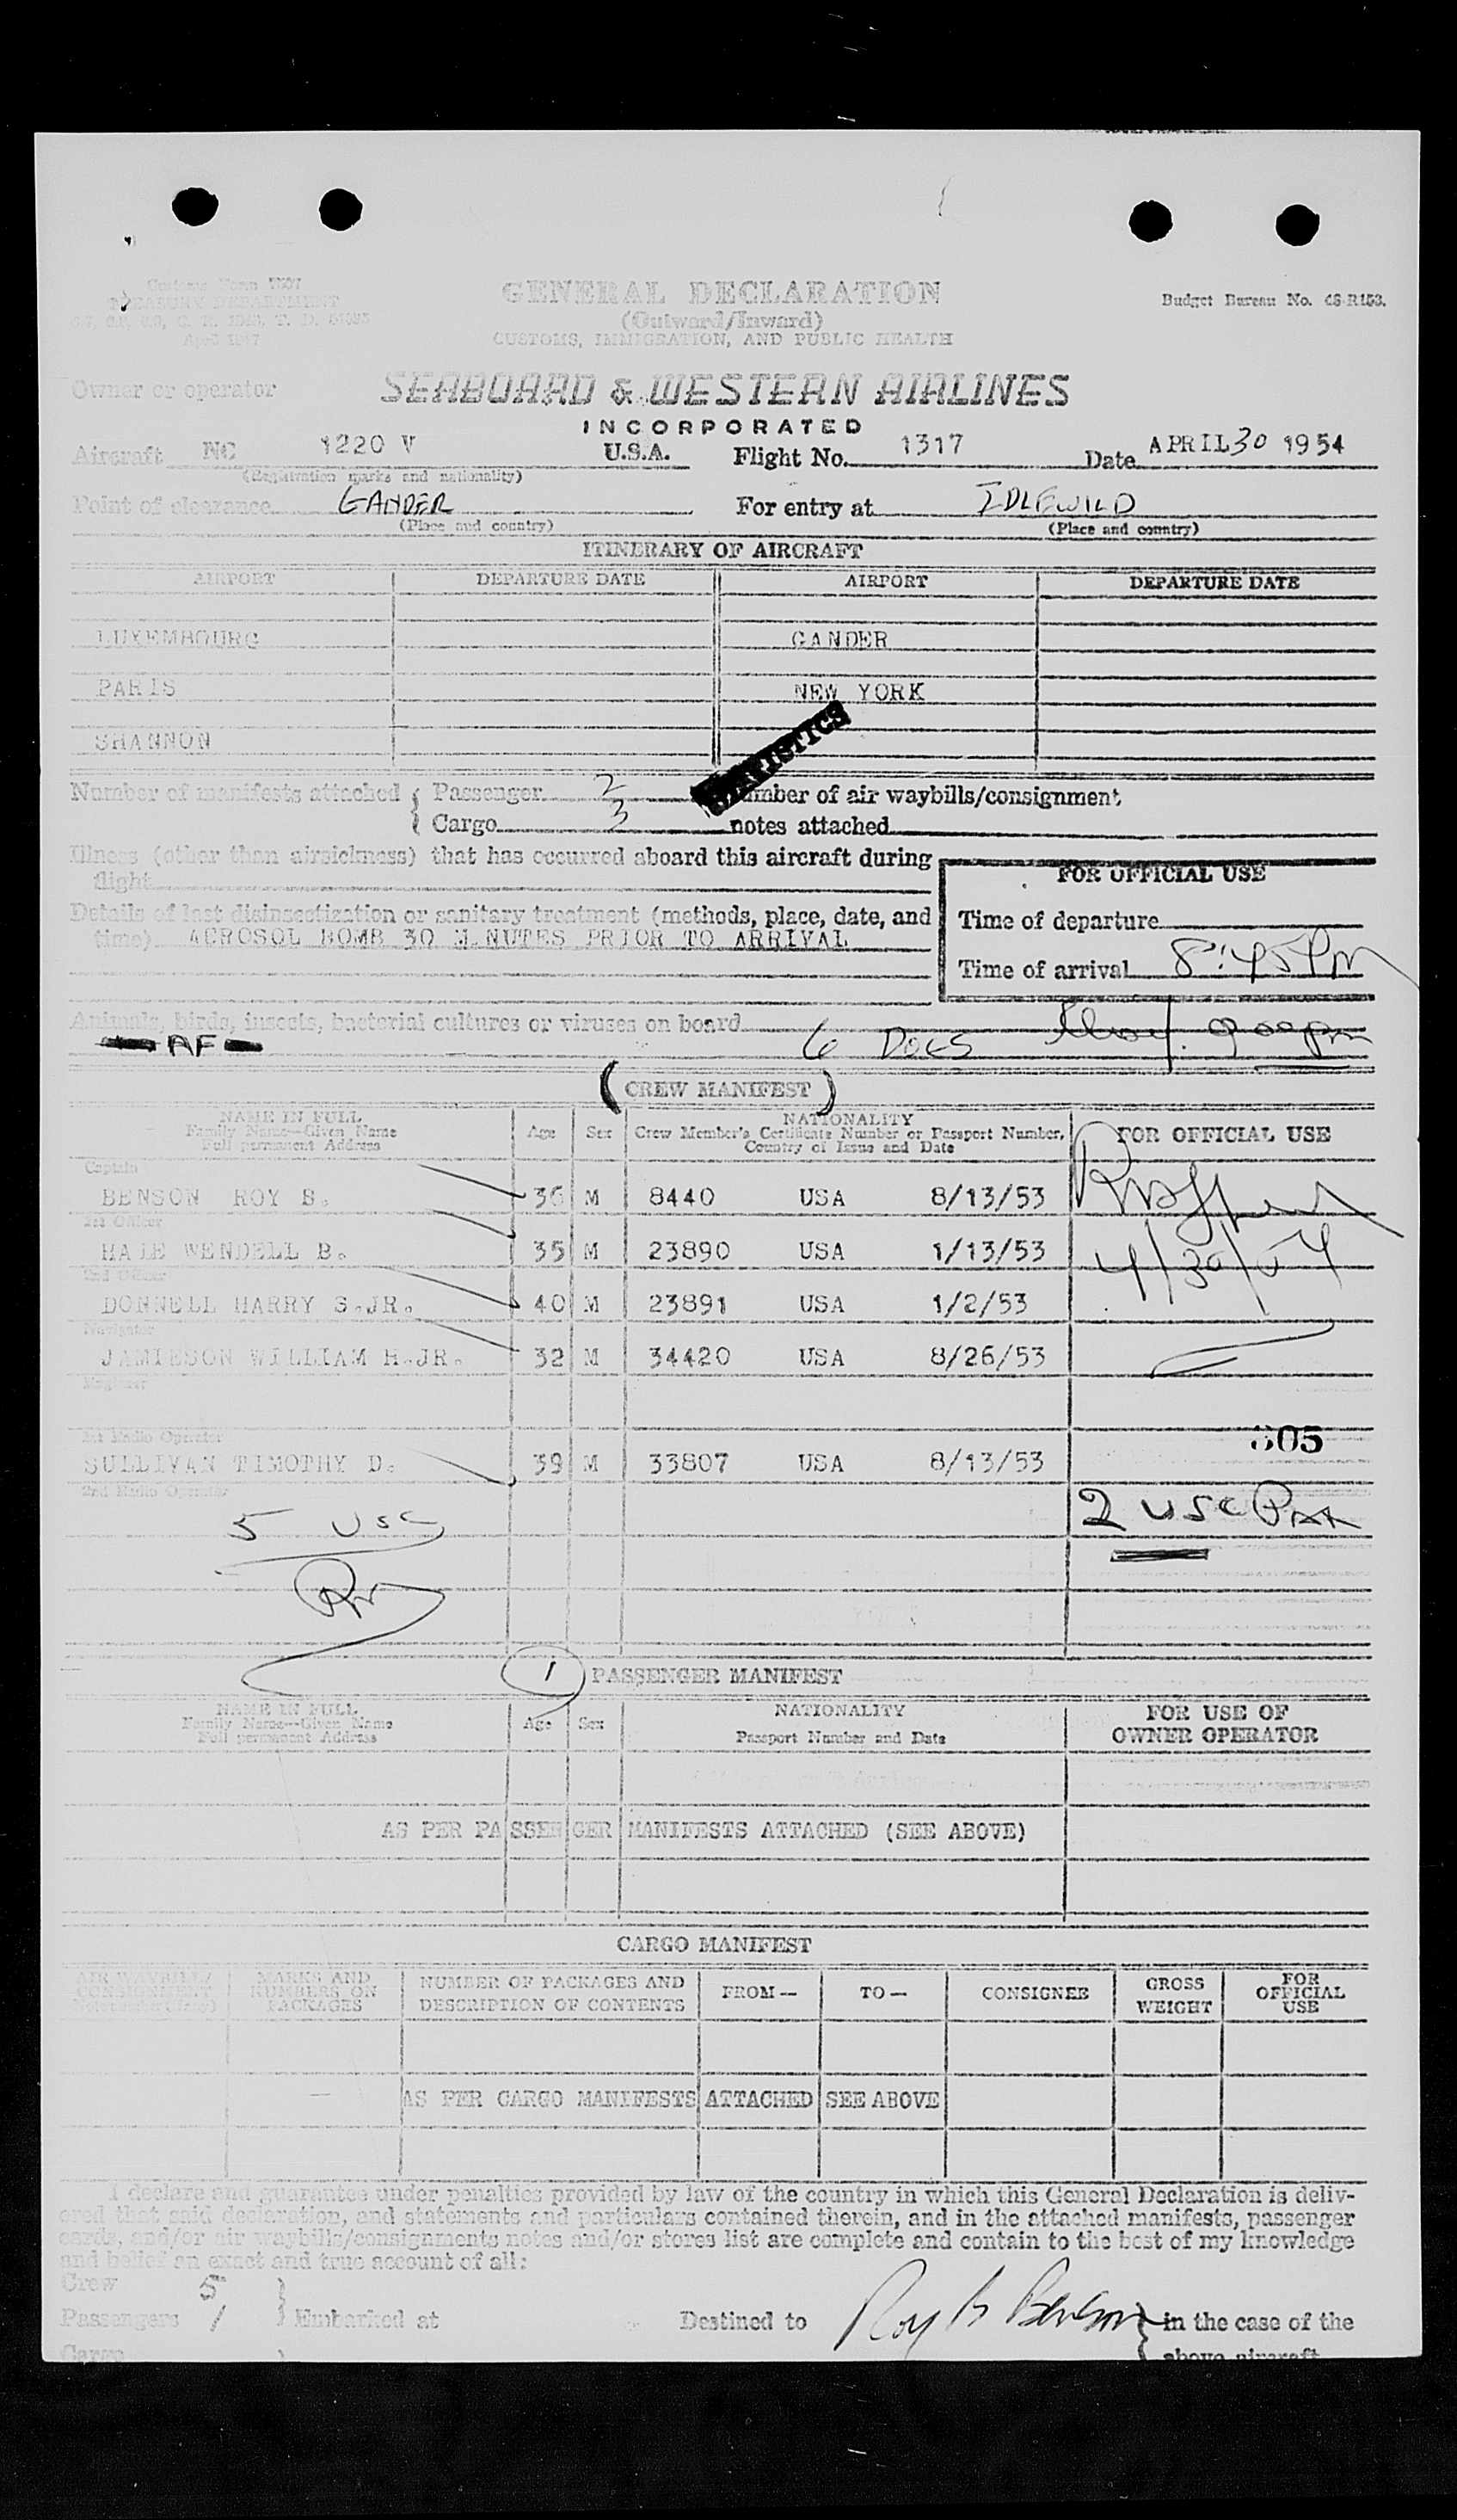 Customs Form 7507
TREASURY DEPARTMENT
April 1947
GENERAL DECLARATION
(Outward/Inward)
CUSTOMS, IMMIGRATION, AND PUBLIC HEALTH
Budget Bureau No. 48-R153.
Owner or operator SEABOARD & WESTERN AIRLINES
INCORPORATED
Aircraft NC 1220 V U.S.A. Flight No. 1317 Date APRIL 30 1954
(Registration marks and nationality)
Point of clearance GANDER For entry at IDLEWILD
(Place and country) (Place and country)
ITINERARY OF AIRCRAFT
AIRPORT DEPARTURE DATE AIRPORT DEPARTURE DATE
LUXEMBOURG GANDER
PARIS NEW YORK
SHANNON
STATISTICS
Number of manifests attached { Passenger 2 Number of air waybills/consignment
Cargo 3 notes attached
Illness (other than airsickness) that has occurred aboard this aircraft during
flight
FOR OFFICIAL USE
Details of last disinsectization or sanitary treatment (methods, place, date, and
time) AEROSOL BOMB 30 MINUTES PRIOR TO ARRIVAL
Time of departure
Time of arrival 8:45 PM
Animals, birds, insects, bacterial cultures or viruses on board
AF 6 DOGS 9 00 pm
(CREW MANIFEST)
NAME IN FULL
Family Name—Given Name
Full permanent Address
Age Sex NATIONALITY
Crew Member's Certificate Number or Passport Number,
Country of Issue and Date
FOR OFFICIAL USE
Captain
BENSON ROY B. 36 M 8440 USA 8/13/53
1st Officer
HALE WENDELL B. 35 M 23890 USA 1/13/53
4/30/54
2nd Officer
DONNELL HARRY S.JR. 40 M 23891 USA 1/2/53
Navigator
JAMIESON WILLIAM H.JR. 32 M 34420 USA 8/26/53
Engineer
1st Radio Operator
305
SULLIVAN TIMOTHY D. 39 M 33807 USA 8/13/53
2nd Radio Operator
5 USC
2 USC Pax
1 PASSENGER MANIFEST
NAME IN FULL
Family Name—Given Name
Full permanent Address
Age Sex NATIONALITY
Passport Number and Date
FOR USE OF
OWNER OPERATOR
AS PER PASSENGER MANIFESTS ATTACHED (SEE ABOVE)
CARGO MANIFEST
AIR WAYBILL/
CONSIGNMENT
MARKS AND
NUMBERS ON
PACKAGES
NUMBER OF PACKAGES AND
DESCRIPTION OF CONTENTS
FROM— TO— CONSIGNEE GROSS
WEIGHT
FOR
OFFICIAL
USE
AS PER CARGO MANIFESTS ATTACHED SEE ABOVE
I declare and guarantee under penalties provided by law of the country in which this General Declaration is deliv-
ered that said declaration, and statements and particulars contained therein, and in the attached manifests, passenger
cards, and/or air waybills/consignments notes and/or stores list are complete and contain to the best of my knowledge
and belief an exact and true account of all:
Crew 5
Passengers 1 } Embarked at Destined to Roy B Benson } in the case of the
Cargo above aircraft